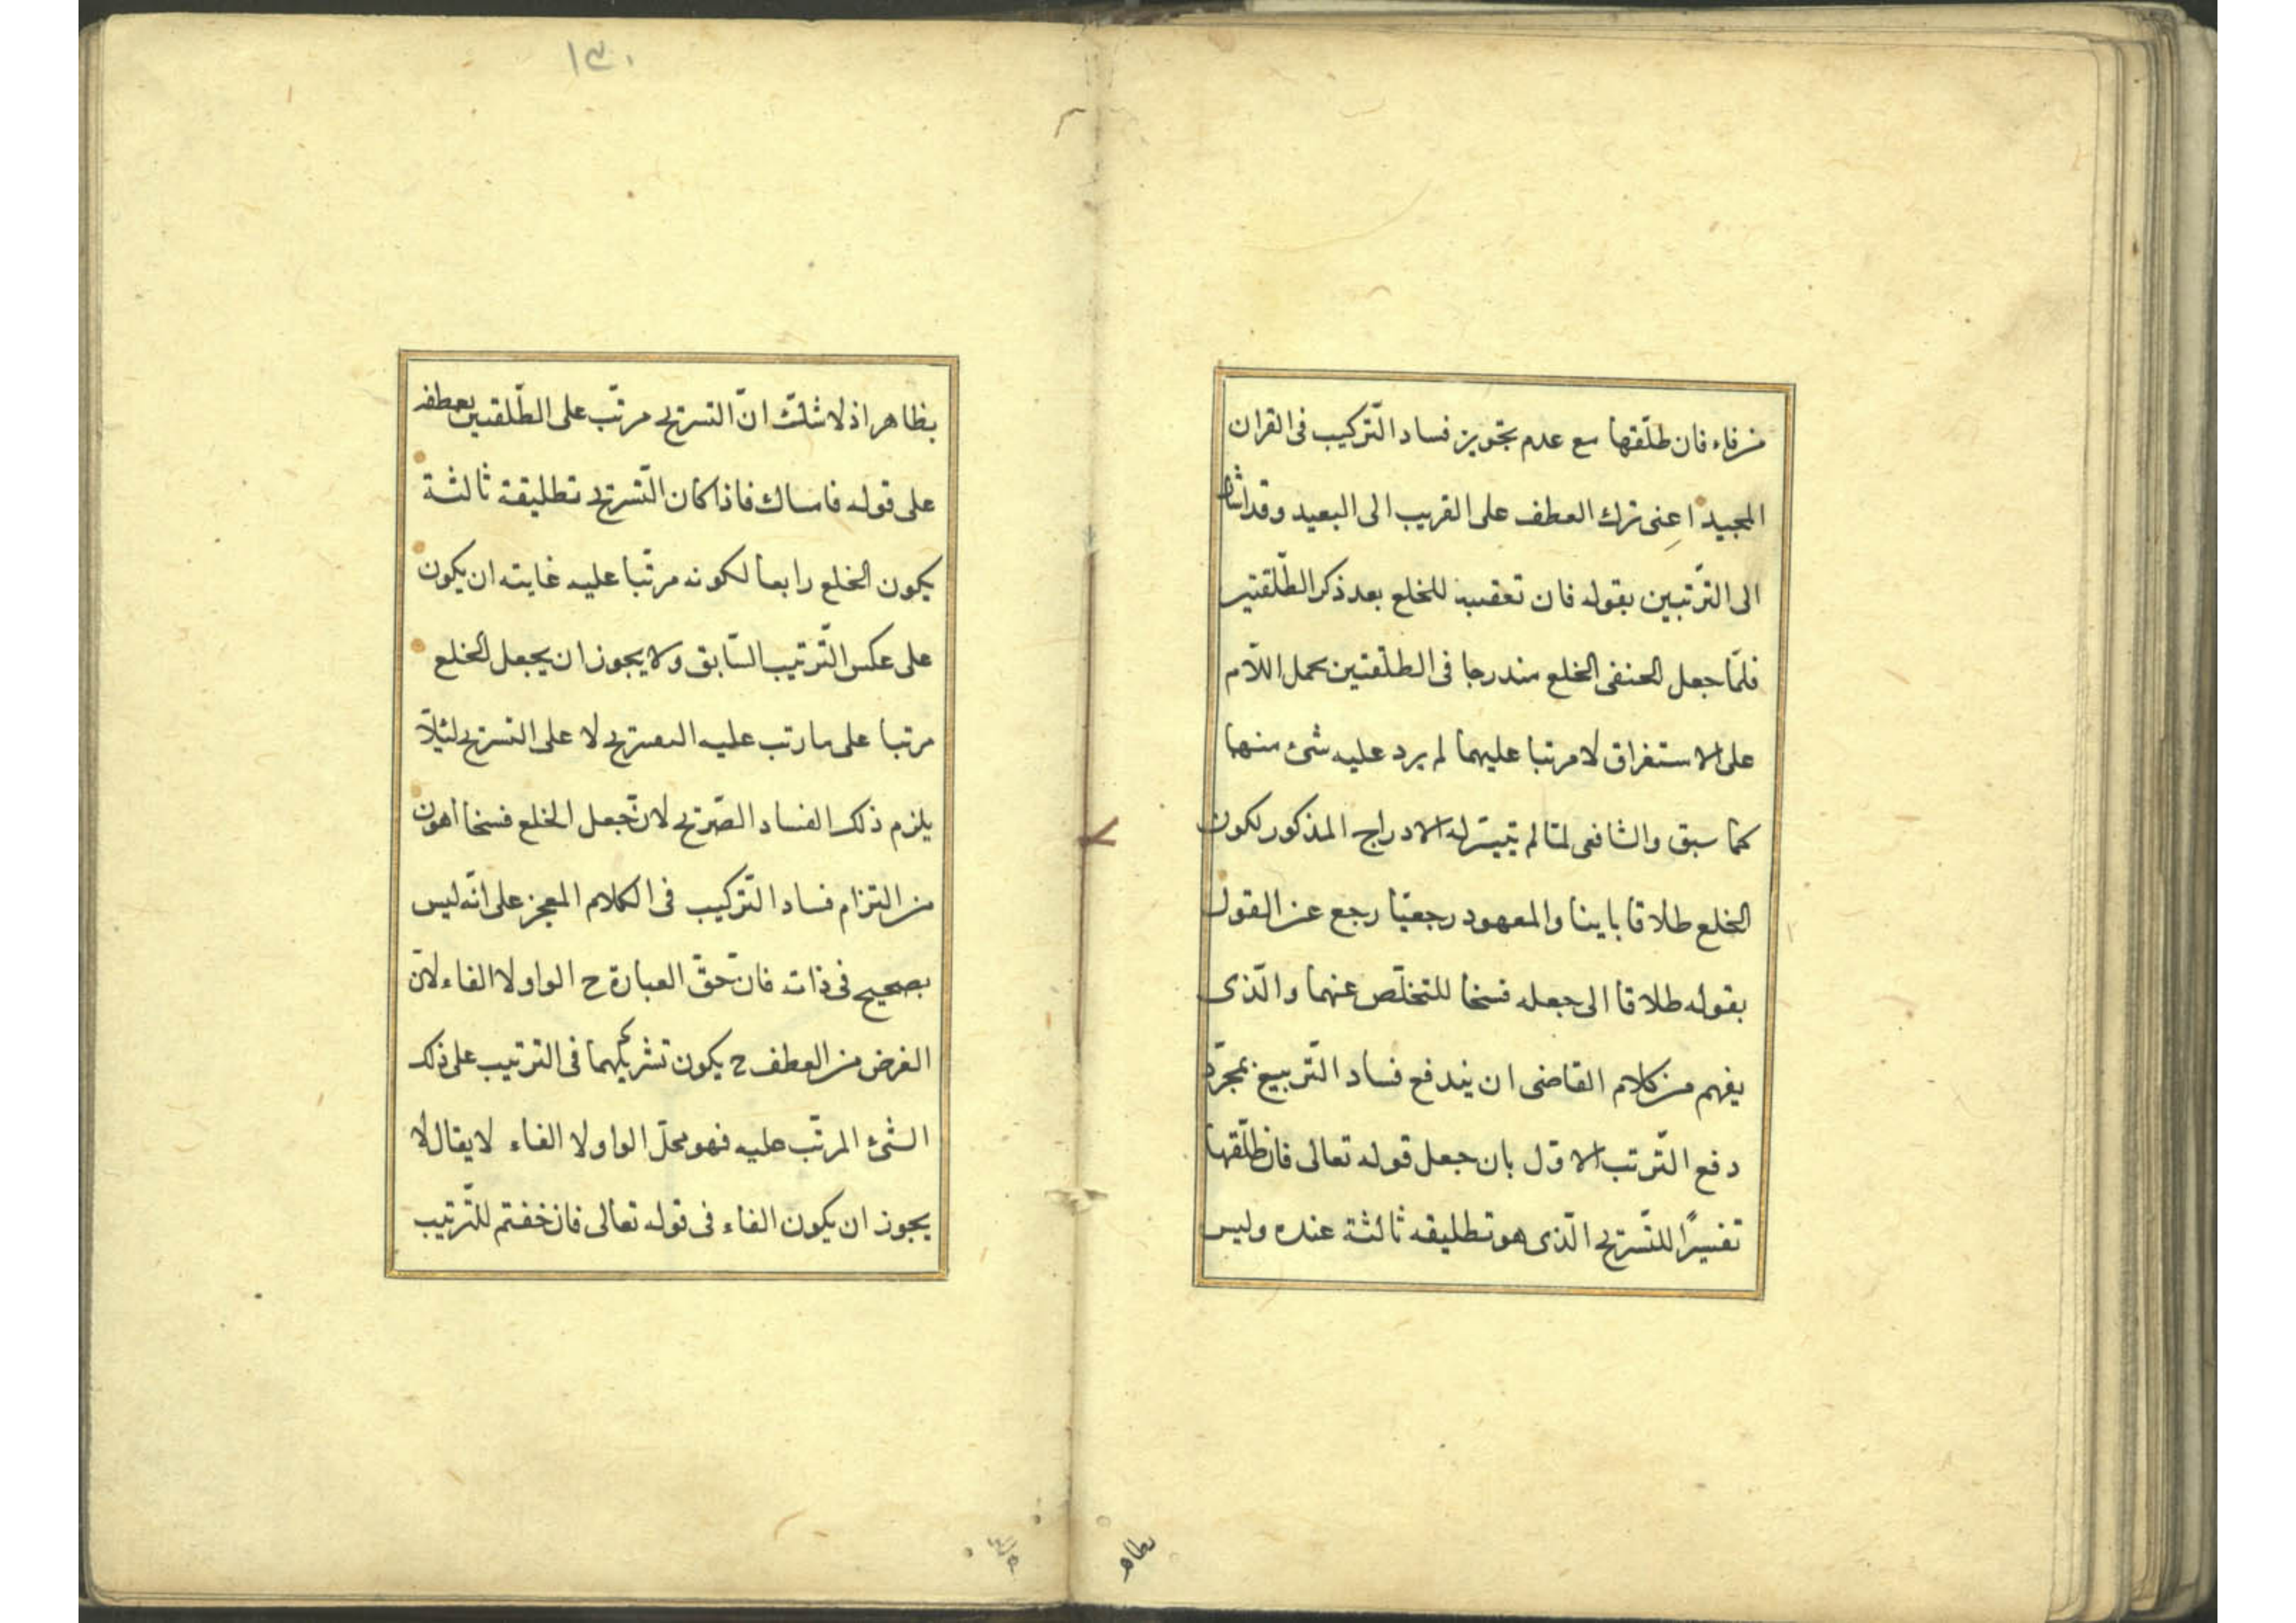 من فاء فان طلّقها مع عدم تجويز فساد التّركيب فى القران
المجيد اعنى ترك العطف على القريب الى البعيد وقد اشار
الى التّرتبين بقوله فان تعقيبه للخلع بعد ذكر الطّلقتين
فلمّا جعل الحنفى الخلع مندرجا فى الطلقتين بحمل اللّام
على الاستغراق لا مرتبا عليهما لم يرد عليه شئ منهما
كما سبق والشافعى لمّا لم يتيسّر له الادراج المذكور لكون
الخلع طلاقا باينا والمعهود رجعيّا رجع عن القول
بقوله طلاقا الى جعله فسخا للتخلّص عنهما والّذى
يفهم من كلام القاضى ان يندفع فساد التّربيع بمجرّد
دفع التّرتب الاوّل بان جعل قوله تعالى فان طلّقها
تفسيرًا للتّسريح الّذى هو تطليقه ثالثة عنده وليس
بظاهر
١٣٠
بظاهر اذ لا شكّ انّ التسريح مرتّب على الطّلقتين بعطفه
على قوله فامساك فاذا كان التّسريح تطليقة ثالثة
يكون الخلع رابعا لكونه مرتّبا عليه غايته ان يكون
على عكس التّرتيب السّابق ولا يجوز ان يجعل الخلع
مرتبا على ما رتب عليه التسريح لا على التسريح لئلّا
يلزم ذلك الفساد الصّريح لانّ جعل الخلع فسخا اهون
من التزام فساد التّركيب فى الكلام المعجز على انّه ليس
بصحيح فى ذاته فانّ حقّ العبارة ح الواو لا الفاء لانّ
الغرض من العطف ح يكون تشريكهما فى الترتيب على ذلك
الشّئ المرتّب عليه فهو محلّ الواو لا الفاء لا يقال لا
يجوز ان يكون الفاء فى قوله تعالى فان خفتم للتّرتيب